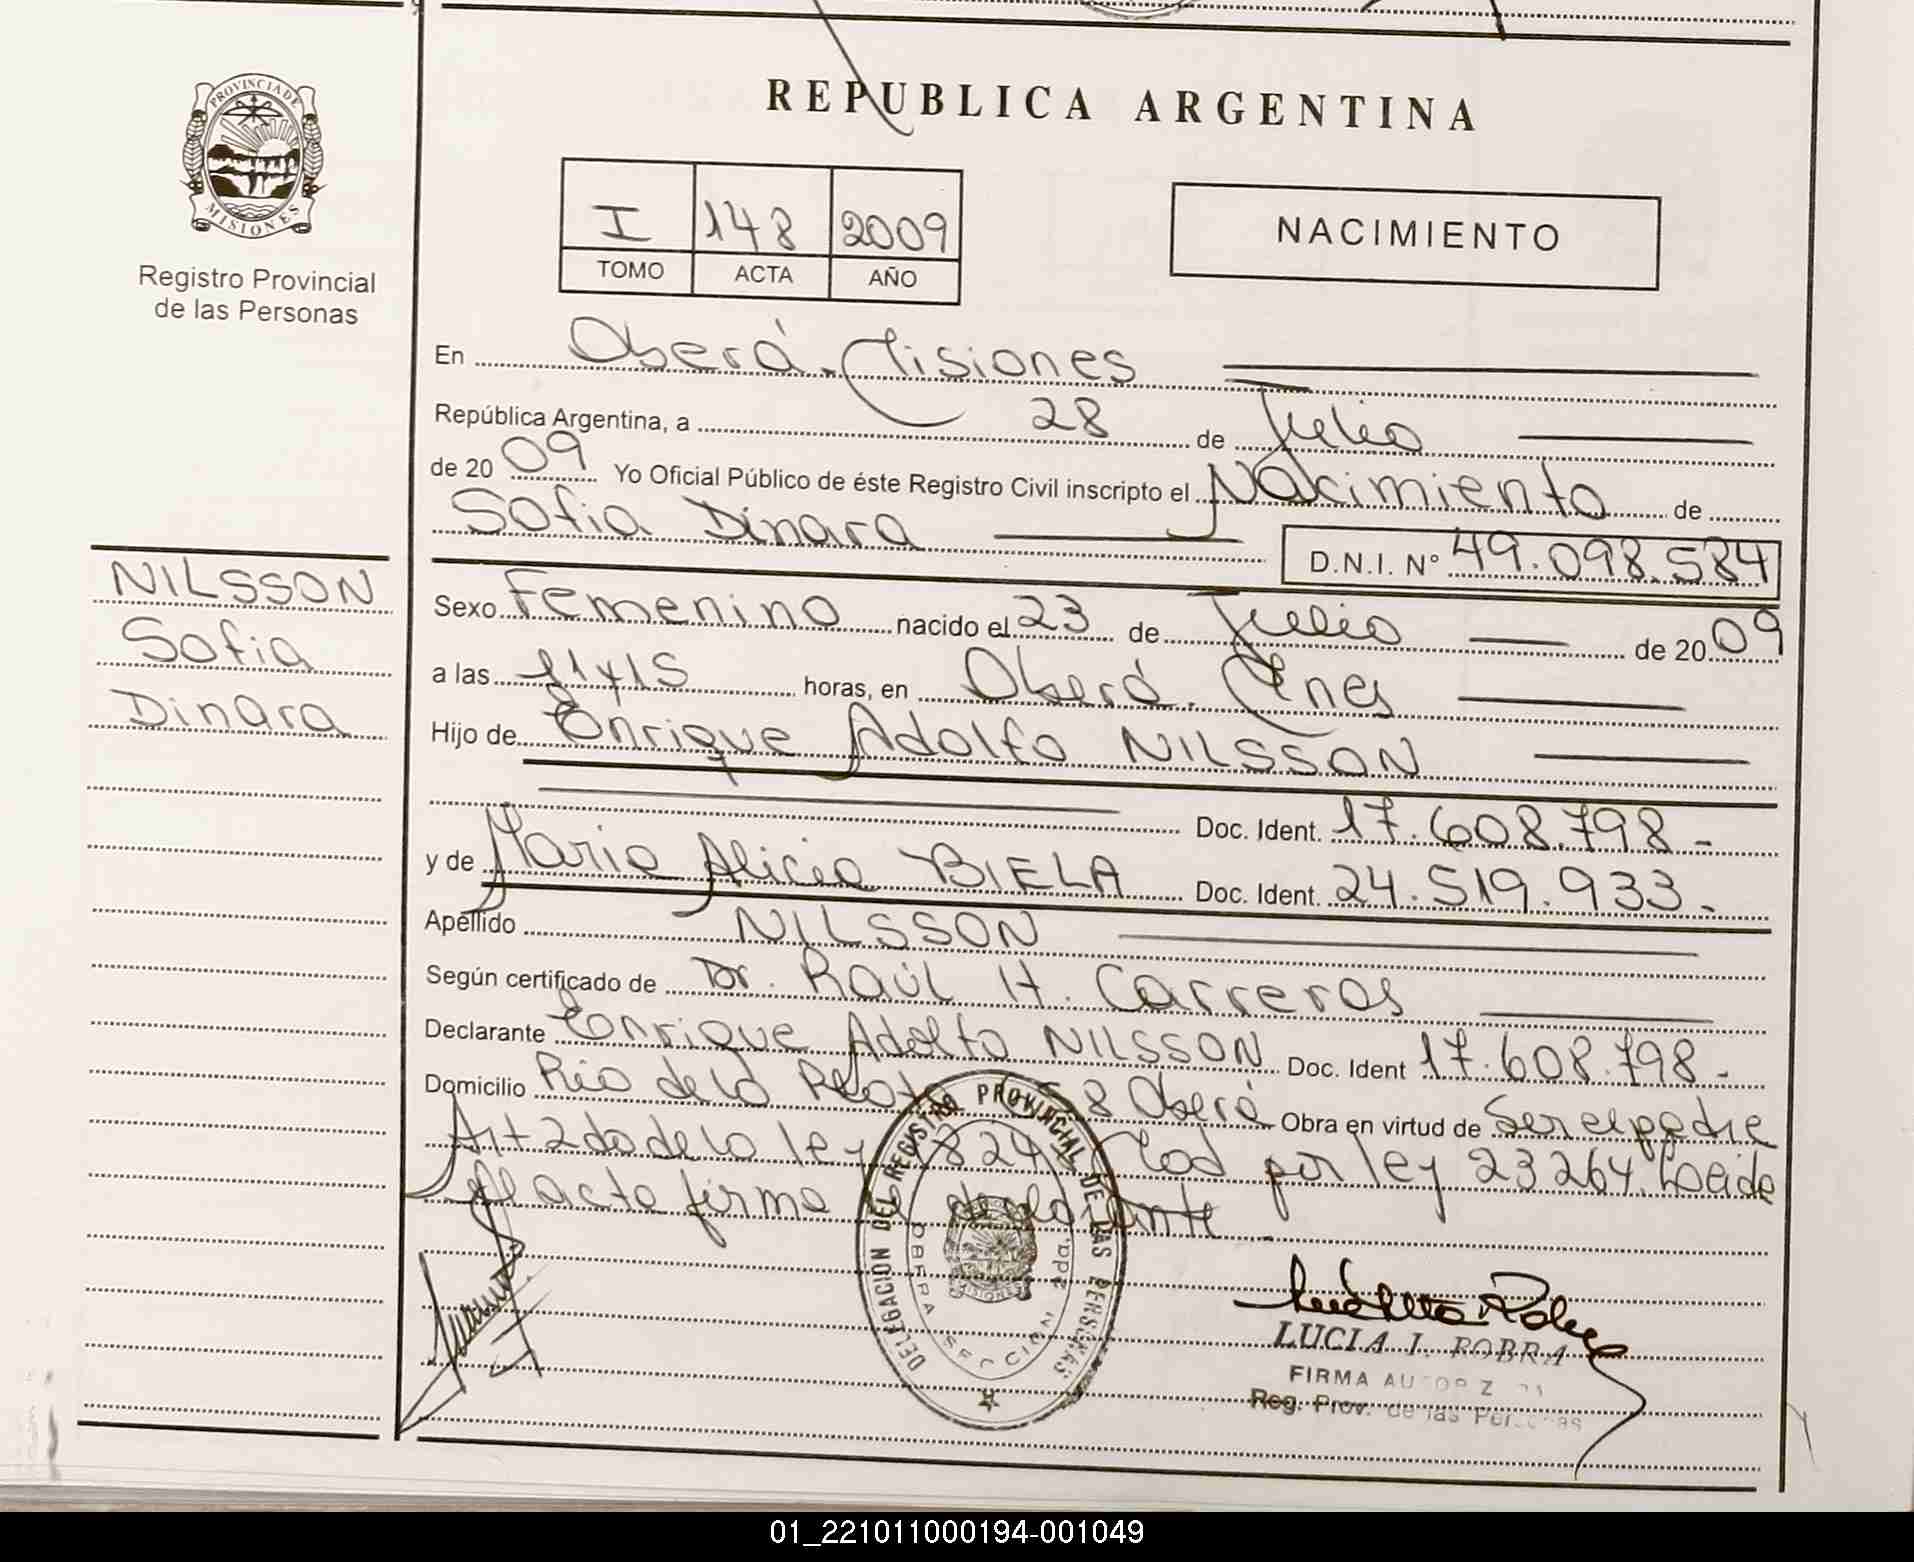 REPUBLICA ARGENTINA
PROVINCIA DE MISIONES
Registro Provincial
de las Personas
I 148 2009
TOMO ACTA AÑO
NACIMIENTO
En Oberá. Misiones
República Argentina, a 28 de Julio
de 2009 Yo Oficial Público de éste Registro Civil inscripto el Nacimiento de
Sofia Dinara
D.N.I. Nº 49.098.584
NILSSON
Sofia
Dinara
Sexo Femenino nacido el 23 de Julio de 2009
a las 11y15 horas, en Oberá. Mnes
Hijo de Enrique Adolfo NILSSON
Doc. Ident. 17.608.798.-
y de Maria Alicia BIELA Doc. Ident. 24.519.933.-
Apellido NILSSON
Según certificado de Dr. Raúl H. Carreros
Declarante Enrique Adolfo NILSSON Doc. Ident 17.608.798.-
Domicilio Rio de la Plata 8 Oberá Obra en virtud de Ser el padre
Art 2do de la ley 18248 Mod por ley 23264. Leida
el acta firma el declarante
DELEGACION DEL REGISTRO PROVINCIAL DE LAS PERSONAS
OBERA SECCION 2da.
MISIONES
LUCIA I. ROBRA
FIRMA AUTORIZADA
Reg. Prov. de las Personas
01_221011000194-001049